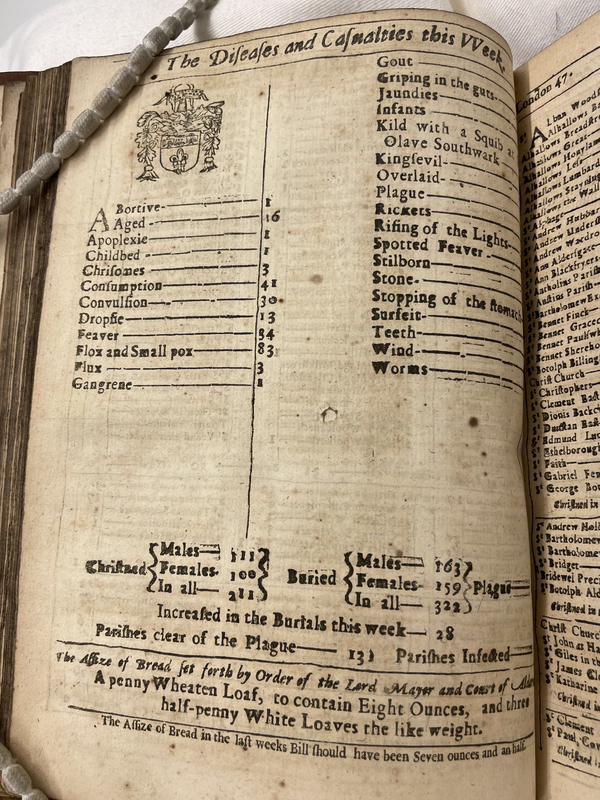 The Diſeaſes and Caſualties this VVeek.
ABortive— 1
Aged— 16
Apoplexie— 1
Childbed— 1
Chriſomes— 3
Conſumption— 41
Convulſion— 30
Dropſie— 13
Feaver— 54
Flox and Small pox— 83
Flux— 3
Gangrene— 1
Gout
Griping in the guts
Jaundies
Infants
Kild with a Squib at
Olave Southwark
Kingſevil
Overlaid
Plague
Rickets
Riſing of the Lights
Spotted Feaver
Stilborn
Stone
Stopping of the ſtomach
Surfeit
Teeth
Wind
Worms
Chriſtned { Males— 111 Females— 100 In all— 211 } Buried { Males— 163 Females— 159 In all— 322 } Plague—
Increaſed in the Burials this week— 28
Pariſhes clear of the Plague— 13 Pariſhes Infected—
The Aſſize of Bread ſet forth by Order of the Lord Mayor and Court of
A penny Wheaten Loaf, to contain Eight Ounces, and three
half-penny White Loaves the like weight.
The Aſſize of Bread in the laſt weeks Bill ſhould have been Seven ounces and an half.
London 47.
Alban Woodſ
Alhallows Ba
Alhallows Breadſtre
Alhallows Great
Alhallows Honylan
Alhallows Leſſ
Alhallows Lumbard
Alhallows Staynin
Alhallows the Wall
St Alphage
St Andrew Hubbar
St Andrew Underſh
St Andrew Wardro
St Ann Alderſgate
St Ann Blackfryers
St Antholins Pariſh
St Auſtins Pariſh
St Bartholomew Ex
St Bennet Finck
St Bennet Gracec
St Bennet Paulſwh
St Bennet Shereho
St Botolph Billing
Chriſt Church
St Chriſtophers
St Clement Eaſt
St Dionis Backc
St Dunſtan Eaſt
St Edmund Lu
St Ethelboroug
St Faith
St Gabriel Fen
St George Bot
Chriſtned in
St Andrew Hol
St Bartholomew
St Bartholomew
St Bridget
Bridewel Preci
St Botolph Ald
Chriſtned in
Chriſt Church
St John at Ha
St Giles in th
St James Cl
St Katharine
Chriſtned in
St Clement
St Paul, Cov
Chriſtned i